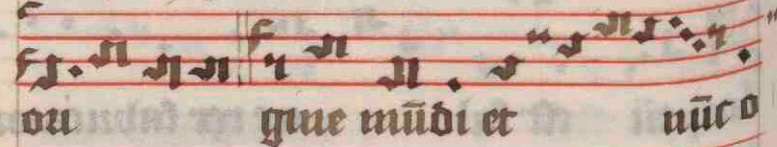 ori gine mūdi et nūc o